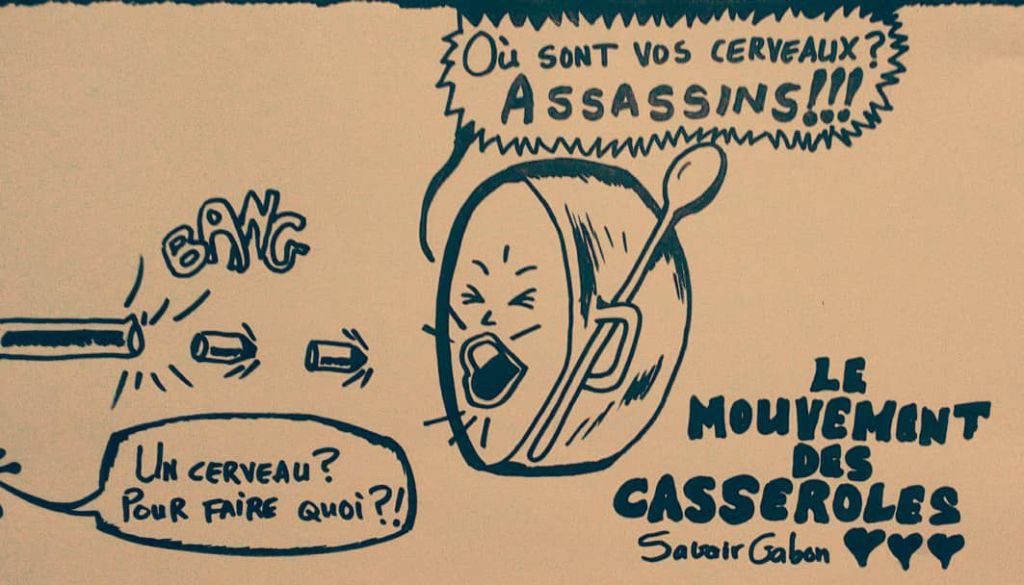 Où SONT VOS CERVEAUX?
ASSASSINS!!!
BANG
UN CERVEAU?
POUR FAIRE QUOI?!
LE
MOUVEMENT
DES
CASSEROLES
Savoir Gabon